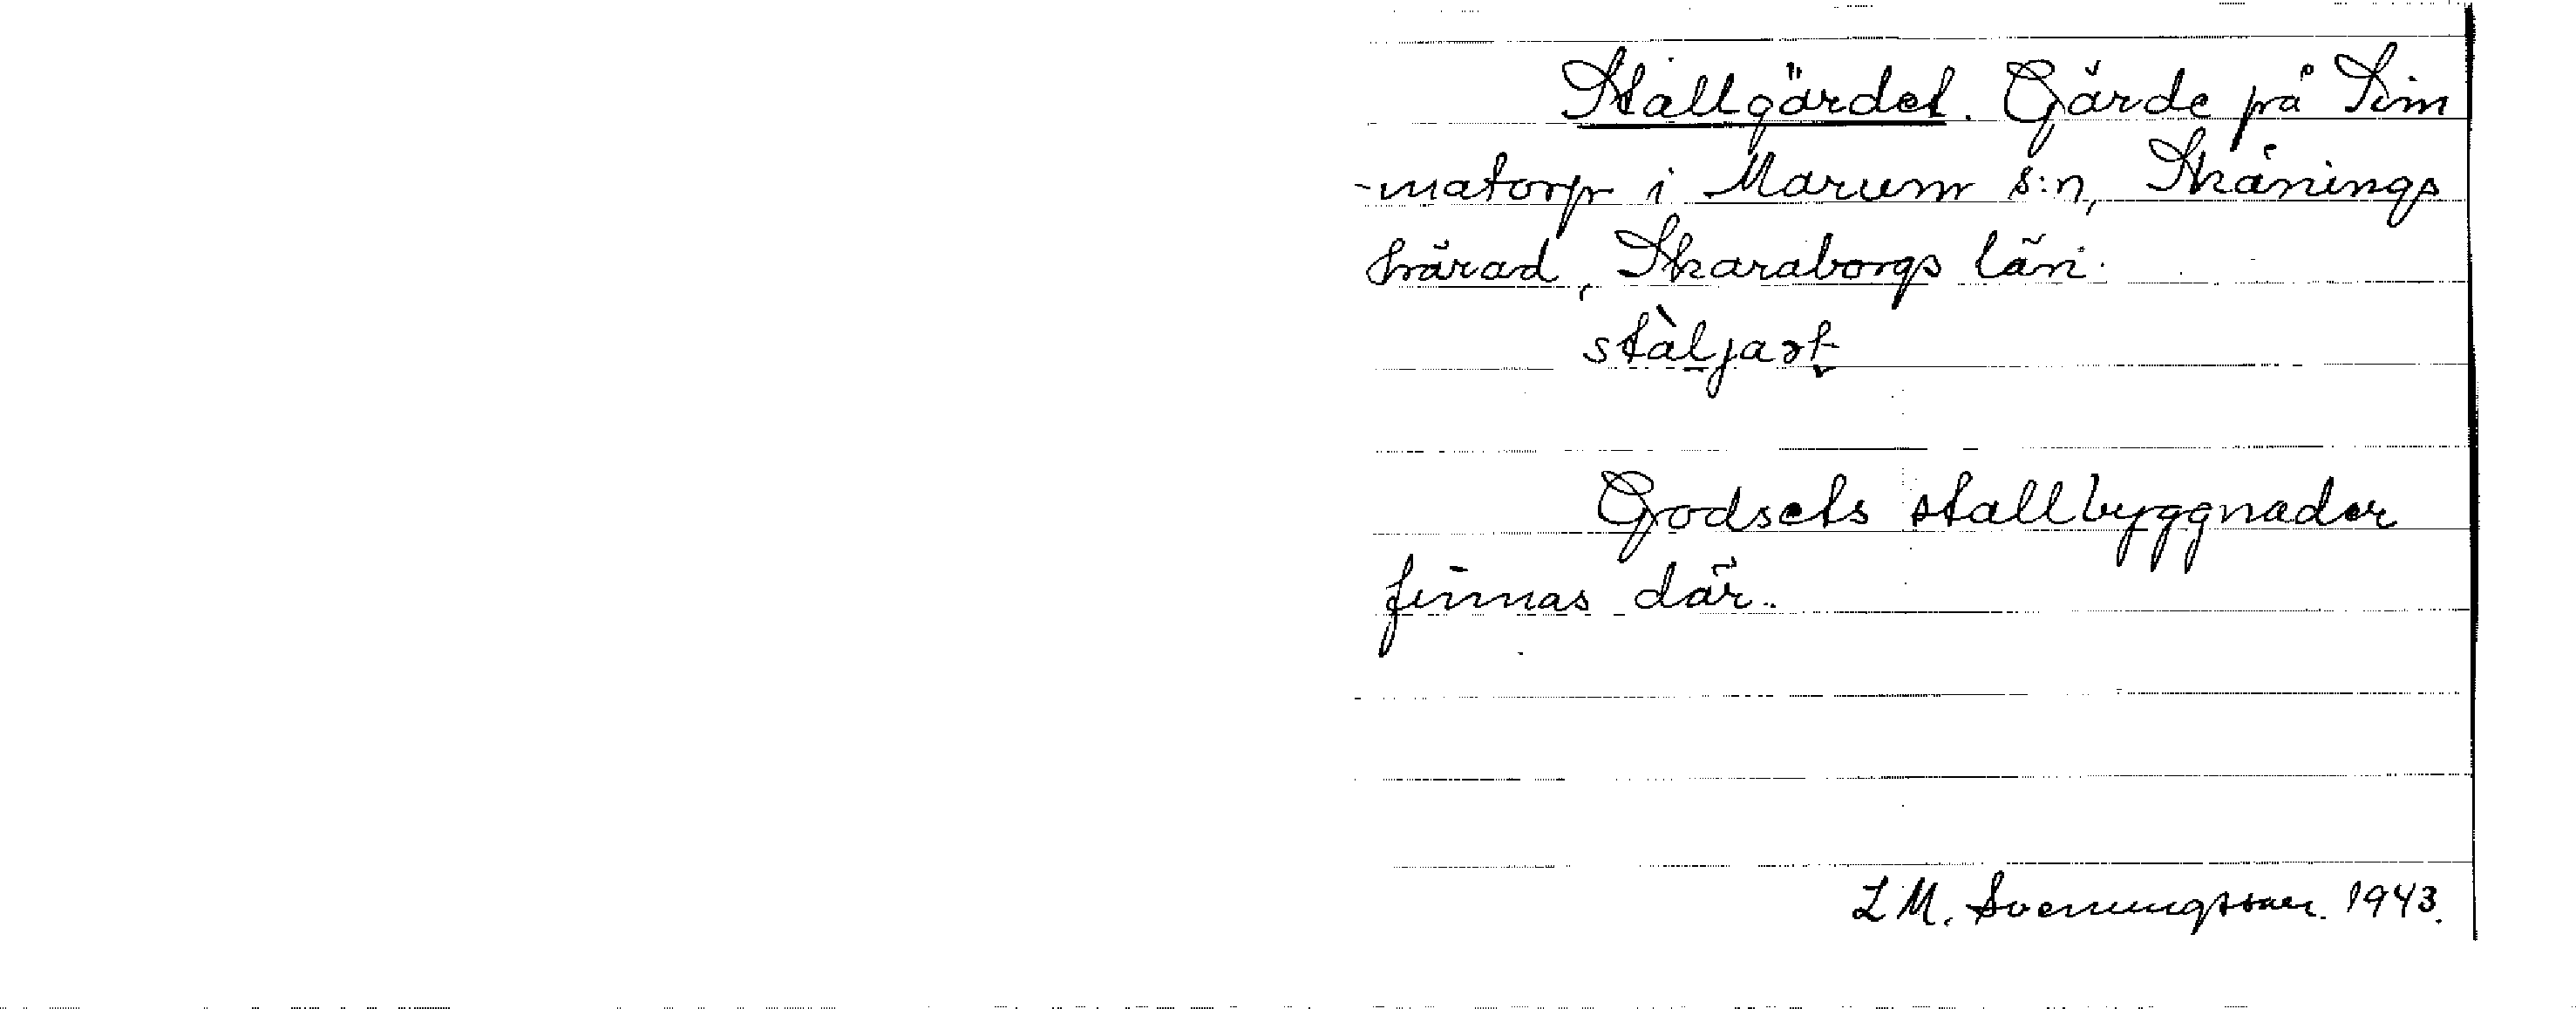 Stallgärdet. Gärde på Sim
-matorp i Marum s:n, Skånings
härad, Skaraborgs län.
stàljaɤt
Godsets stallbyggnader
finnas där.
L M. Svenungsson. 1943.